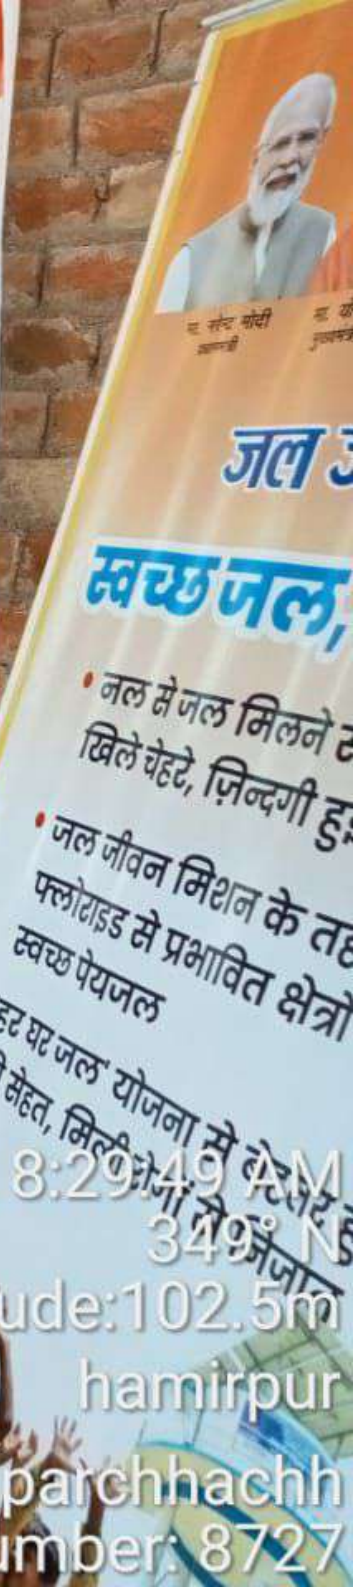 मा. नरेन्द्र मोदी
प्रधानमंत्री
मा. यो
मुख्यमं
जल
स्वच्छ जल,
• नल से जल मिलने
खिले चेहरे, ज़िन्दगी हुई
• जल जीवन मिशन के तह
फ्लोराइड से प्रभावित क्षेत्रों
स्वच्छ पेयजल
हर घर जल' योजना से बेहतर हु
सेहत, मिली रोगों से निजात
8:29:49 AM
349° N
ude:102.5m
hamirpur
parchhachh
umber: 8727